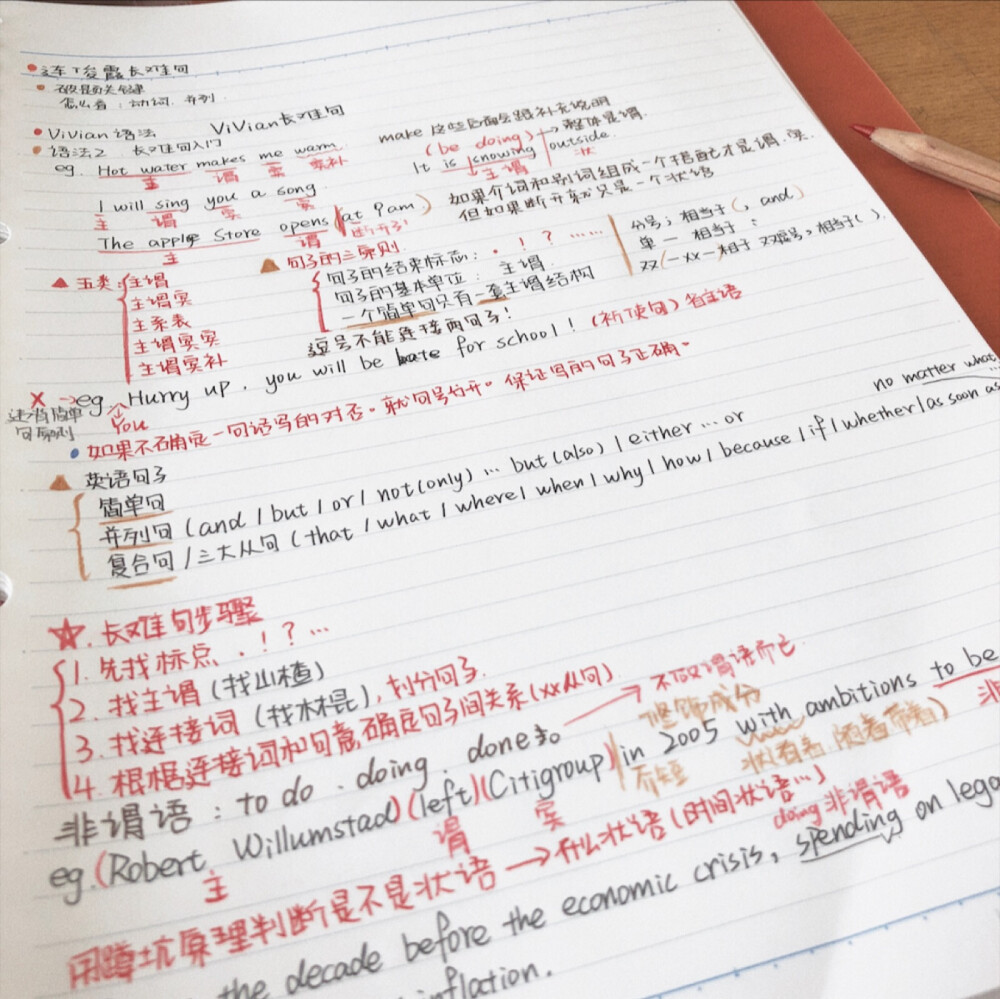 长难句
破题关键
怎么看:动词 并列
Vivian 语法 Vivian 长难句
语法2 长难句入门
make 这些后面会跟补充说明
eg. Hot water makes me warm
主 谓 宾 宾补
(be doing) → 整体是谓.
It is snowing outside
主谓 状
I will sing you a song
主 谓 宾 宾
如果介词和别词组成一个搭配才是谓.宾.
但如果断开来就只是一个状语
The apple Store opens (at 9am)
主 谓 断开了!
分号;相当于(, and)
单一 相当于 :
双(一xx一相于双逗号,相当于( ).
五类:主谓
主谓宾
主系表
主谓宾宾
主谓宾补
句子的三原则
句子的结束标志: . ! ? ……
句子的基本单位:主谓
一个简单句只有一套主谓结构
逗号不能连接两句子!
X → eg. Hurry up, you will be late for school! (祈使句) 省主语
You
违背简单
句原则
如果不确定一句话写的对否。就句号分开。保证写的句子正确。
英语句子
简单句
并列句 (and / but / or / not (only) … but (also) / either … or
no matter what
复合句 / 三大从句 (that / what / where / when / why / how / because / if / whether / as soon as
长难句步骤
1. 先找标点 . ! ? …
2. 找主谓 (找山楂)
3. 找连接词 (找木棍), 划分句子
4. 根据连接词和句意确定句子间关系 (xx从句)
非谓语:to do . doing . done。 → 不做谓语而已
修饰成分
eg. (Robert Willumstad) (left) (Citigroup) in 2005 with ambitions to be
主 谓 宾 介短 状语 (随着 带着) 非
用蹲坑原理判断是不是状语 → 什么状语 (时间状语…)
doing 非谓语
the decade before the economic crisis, spending on lega
inflation.